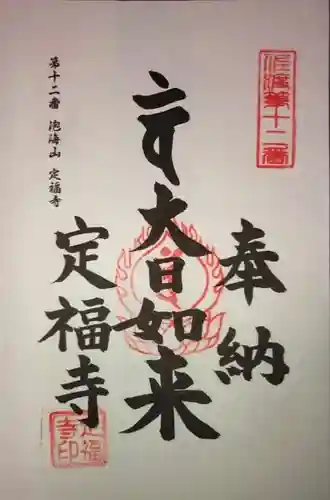 佐渡第十二番
奉納
大日如来
定福寺
第十二番 滝海山 定福寺
定福寺印